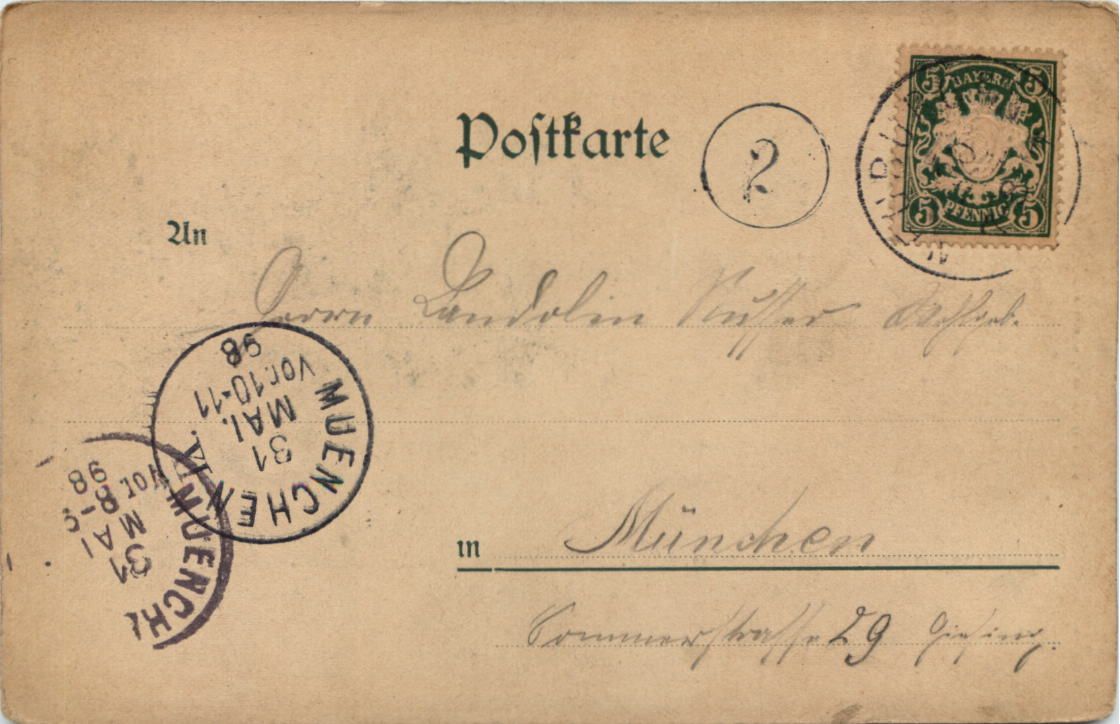 Postkarte
2
5 BAYERN 5
5 PFENNIG 5
An
Herrn Landolin
MUENCHEN VI.
31
MAI.
Vor.10-11
98
MUENCH
31
MAI
Vor 8-9
98
in München
Sommerstrasse 29 Giesing.